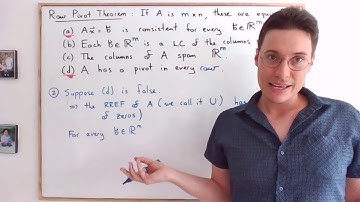 Row Pivot Theorem: If A is m×n, these are equ
(a) Ax⃗ = b⃗ is consistent for every b⃗ ∈ ℝᵐ
(b) Each b⃗ ∈ ℝᵐ is a LC of the columns
(c) The columns of A span ℝᵐ
(d) A has a pivot in every row
② Suppose (d) is false.
⇒ the RREF of A (we call it U) has
of zeros)
For every b⃗ ∈ ℝᵐ